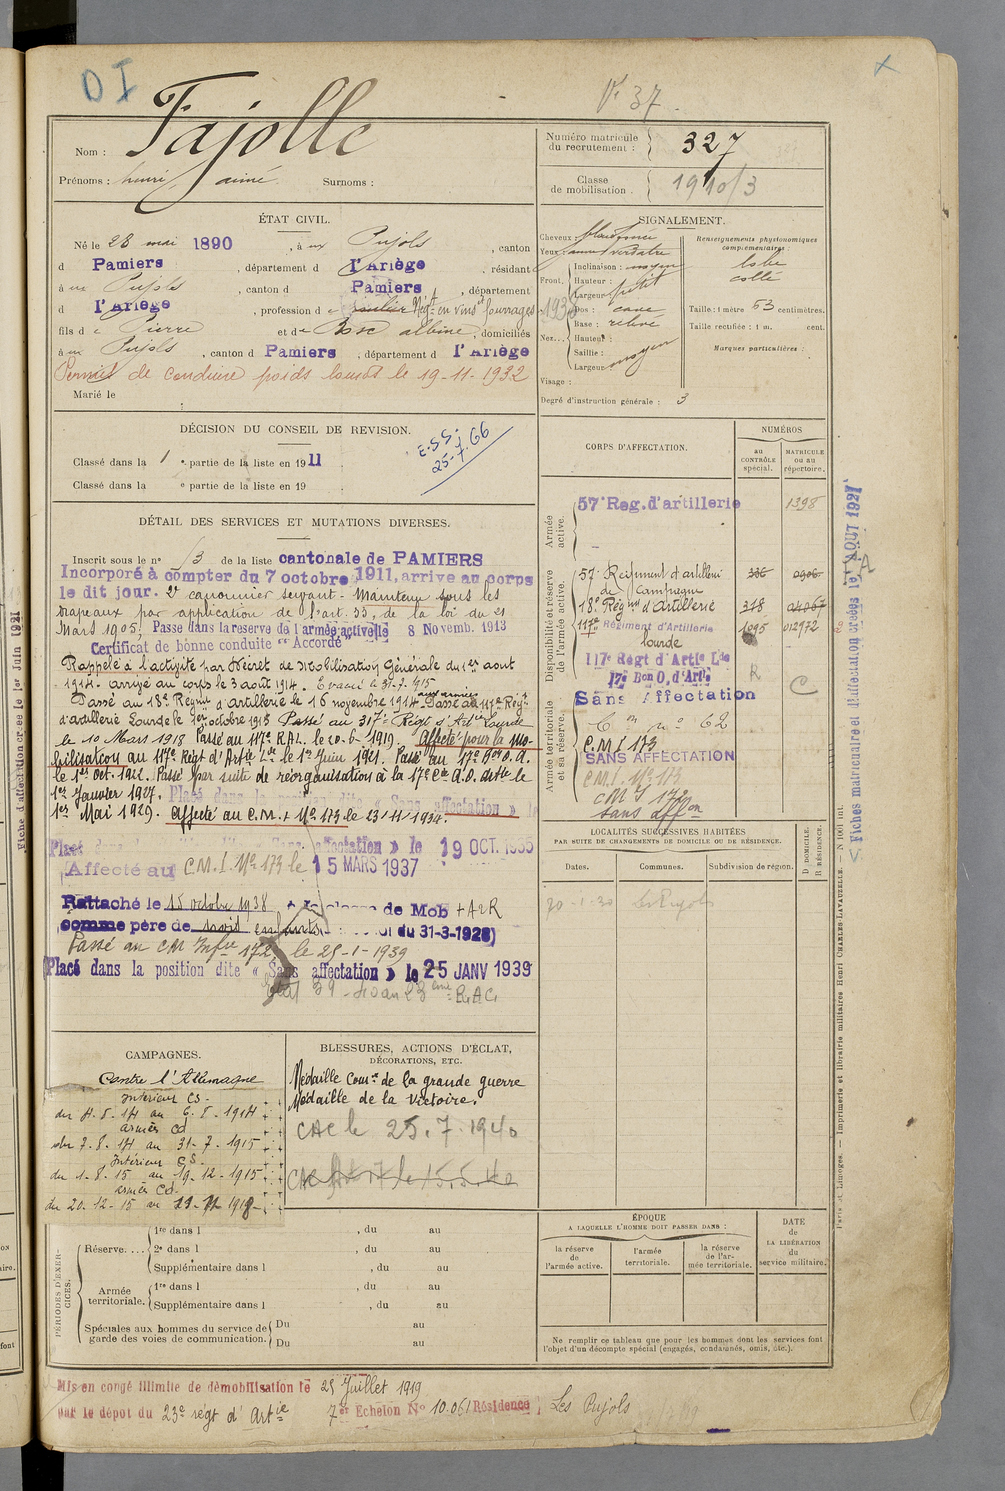 DI
Vr 37
X
Nom : Fajolle
Prénoms : henri, aimé. Surnoms :
Numéro matricule du recrutement : 327
Classe de mobilisation. 1910/3
ÉTAT CIVIL.
Né le 28 mai 1890, à aux Pujols, canton
d Pamiers, département d l'Ariège, résidant
à aux Pujols, canton d Pamiers, département
d l'Ariège, profession d Négt en vins et fourrages 1938
fils de Pierre et de Bosc albine, domiciliés
à aux Pujols, canton d Pamiers, département d l'Ariège
Permis de conduire poids lourds le 19-11-1932
Marié le
SIGNALEMENT.
Cheveux :
Yeux : verdâtre
Front. Inclinaison : moyen
Hauteur : petit
Largeur
Nez... Dos : cave
Base : relevé
Hauteur :
Saillie :
Largeur moyen
Visage :
Degré d'instruction générale : 3
Renseignements physionomiques complémentaires :
lobe
collé
Taille : 1 mètre 63 centimètres.
Taille rectifiée : 1 m. cent.
Marques particulières :
DÉCISION DU CONSEIL DE REVISION.
Classé dans la 1e partie de la liste en 1911
Classé dans la e partie de la liste en 19
E.S.S.
25-7.66
DÉTAIL DES SERVICES ET MUTATIONS DIVERSES.
Inscrit sous le n° 13 de la liste cantonale de PAMIERS
Incorporé à compter du 7 octobre 1911, arrive au corps
le dit jour. 2e canonnier servant. Maintenu sous les
drapeaux par application de l'art. 33, de la loi du 21
Mars 1905, Passe dans la reserve de l'armée activelle 8 Novemb. 1913
Certificat de bonne conduite "Accordé"
Rappelé à l'activité par Décret de Mobilisation Générale du 1er aout
1914. arrivé au corps le 3 août 1914. Evacué le 31-7-1915
Passé au 18e Régnt d'artillerie le 16 novembre 1914. Passé au 117e Régt
d'artillerie Lourde le 1er octobre 1915 Passé au 317e Régt d'Artie Lourde
le 10 Mars 1918 Passé au 117e R.A.L. le 20-6-1919. Affecté pour la mo-
bilisation au 117e Régt d'Artie Lde le 1er Juin 1921. Passé au 17e Bon O.A.
le 1er Oct. 1922. Passé par suite de réorganisation à la 17e Cie A.O. Artie le
1er Janvier 1927. Placé dans la position dite « Sans affectation » le
1er Mai 1929. Affecté au C.M.I No 173 le 23/11/1934.
Placé dans la position dite « Sans affectation » le 19 OCT. 1935
Affecté au C.M.I. No 173 le 15 MARS 1937
Rattaché le 15 octobre 1938 à la classe de Mob + A2R
comme père de trois enfants. (loi du 31-3-1928)
Passé au CM Infie 172, le 25-1-1939
Placé dans la position dite « Sans affectation » le 25 JANV 1939
CORPS D'AFFECTATION.
NUMÉROS
au CONTRÔLE spécial.
MATRICULE ou au répertoire.
Armée active.
57e Reg. d'artillerie 1398
Disponibilité et réserve de l'armée active.
57e Régiment d'artillerie de Campagne 336 0906
18e Régnt d'Artillerie 318 04067
117e Régiment d'Artillerie lourde 1095 012972
117e Régt d'Artie Lde
17e Bon O. d'Artie R C
Armée territoriale et sa réserve.
Sans Affectation
Cm no 62
C.M.I 173
SANS AFFECTATION
C.M.I. No 173
CM I 172
sans affon
LOCALITÉS SUCCESSIVES HABITÉES
PAR SUITE DE CHANGEMENTS DE DOMICILE OU DE RÉSIDENCE.
Dates. Communes. Subdivision de région.
D. DOMICILE. R. RÉSIDENCE.
20-1-30 Les Pujols
CAMPAGNES.
Contre l'Allemagne
Intérieur CS.
du 4.8.14 au 6.8.1914
armées CD
du 7.8.14 au 31-7-1915
Intérieur CS.
du 1-8.15 au 19-12-1915
armées CD.
du 20-12-15 au 11-1918
BLESSURES, ACTIONS D'ÉCLAT,
DÉCORATIONS, ETC.
Médaille Comve de la grande guerre
Médaille de la Victoire.
CAC le 25.7.1940
PÉRIODES D'EXERCICES.
Réserve....
1re dans l , du au
2e dans l , du au
Supplémentaire dans l , du au
Armée territoriale.
1re dans l , du au
Supplémentaire dans l , du au
Spéciales aux hommes du service de garde des voies de communication.
Du au
Du au
ÉPOQUE
A LAQUELLE L'HOMME DOIT PASSER DANS :
la réserve de l'armée active.
l'armée territoriale.
la réserve de l'armée territoriale.
DATE de LA LIBÉRATION du service militaire.
Ne remplir ce tableau que pour les hommes dont les services font
l'objet d'un décompte spécial (engagés, condamnés, omis, etc.).
Mis en congé illimité de démobilisation le 25 Juillet 1919
par le dépot du 23e régt d'Artie 7er Echelon No 10.061 Résidence, Les Pujols
< Fiches matriculaire et d'affectation créées le 1 AOUT 1921
Paris et Limoges. — Imprimerie et librairie militaires Henri CHARLES-LAVAUZELLE. — N° 1001 int.
Fiche d'affectation créée le 1er Juin 1921